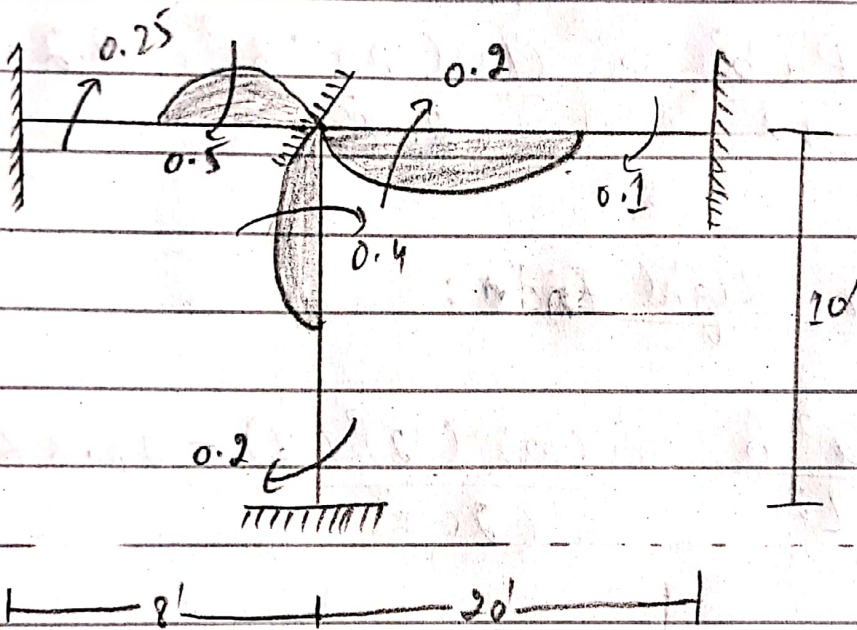 0.25
0.2
0.5
0.1
0.4
10'
0.2
8'
20'